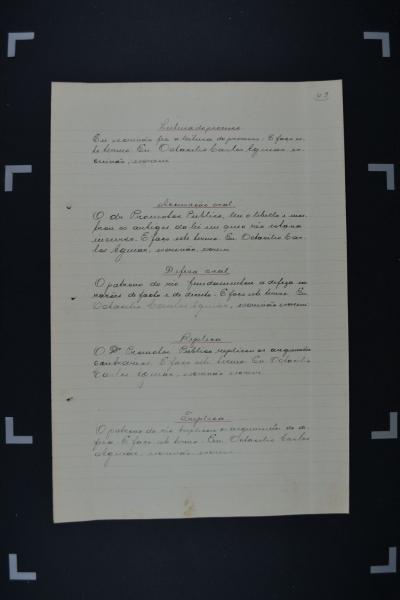 42
Leitura do processo
Eu escrivão fiz a leitura do processo. E faço es-
te termo. Eu, Octacilio Carlos Aguiar, es-
crivão, escrevi
Accusação oral
O dr. Promotor Publico, leu o libello e mos-
trou os artigos da lei em que o réo estava
incurso. E faço este termo. Eu, Octacilio Car-
los Aguiar, escrivão, escrevi
Defesa oral
O patrono do réo fundamentou a defeza em
razões de facto e de direito. E faço este termo. Eu
Octacilio Carlos Aguiar, escrivão escrevi
Replica
O Dr. Promotor Publico replicou os argumentos
contrarios. E faço este termo. Eu Octacilio
Carlos Aguiar, escrivão escrevi
Treplica
O patrono do réo treplicou a argumentos da de-
feza. E faço este termo. Eu, Octacilio Carlos
Aguiar, escrivão, escrevi